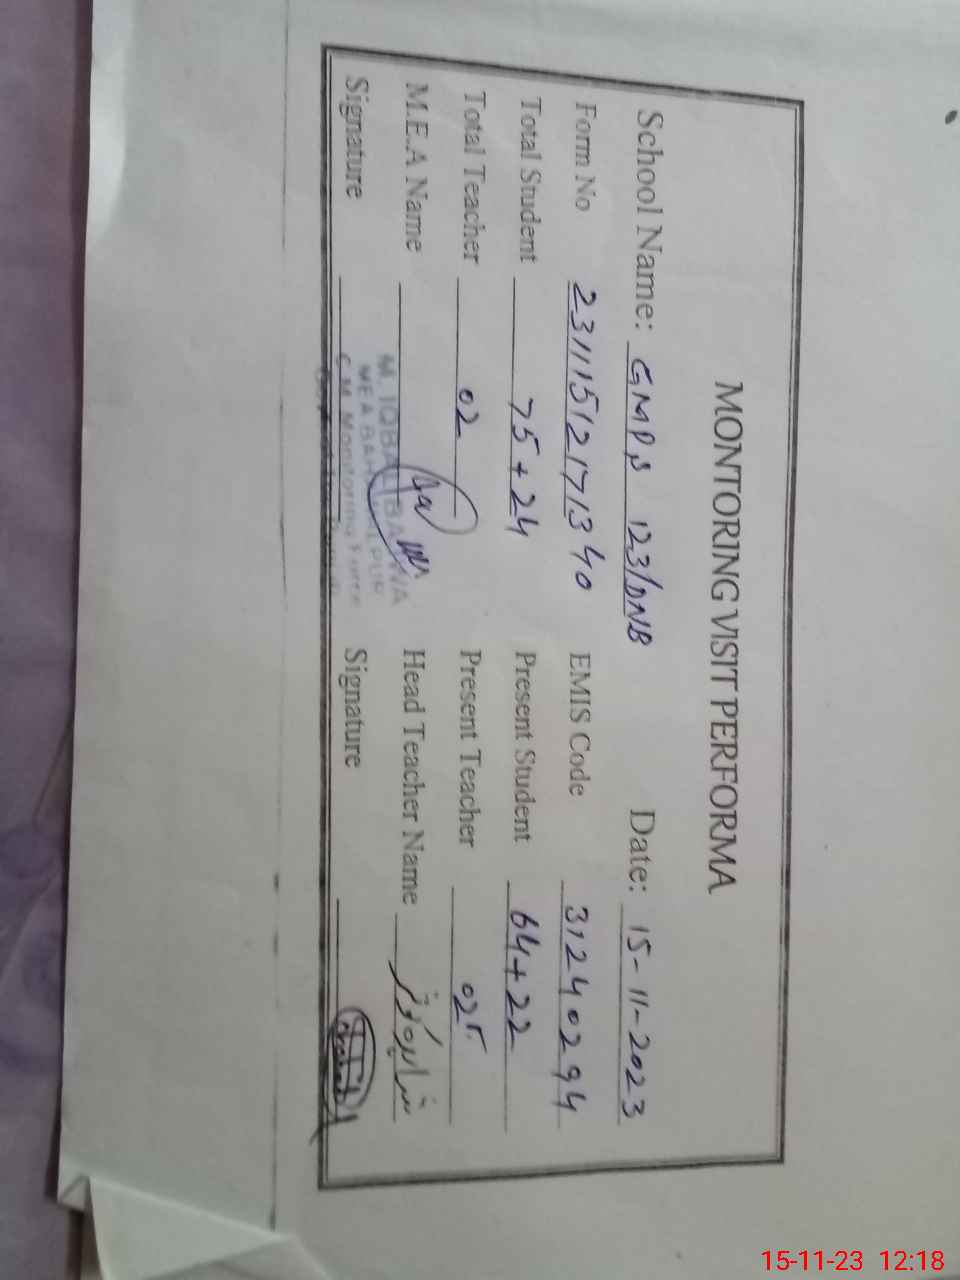 MONTORING VISIT PERFORMA
School Name: GMPS 123/DNB Date: 15-11-2023
Form No 23111512171340 EMIS Code 31240294
Total Student 75+24 Present Student 64+22
Total Teacher 02 Present Teacher 02
M.E.A Name Head Teacher Name
Signature Signature
M. IQBAL BAJWA
MEA BAHAWALPUR
C.M. Monitoring Force
15-11-23 12:18